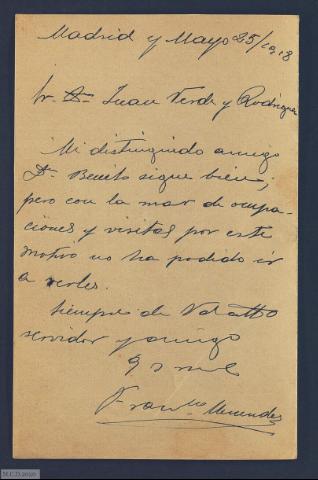 Madrid y Mayo 25/1918
Sr. Dn. Juan Verde y Rodríguez
Mi distinguido amigo
Dn. Benito sigue bien;
pero con la mar de ocupa-
ciones y visitas por este
motivo no ha podido ir
a verles.
Siempre de Vd atto
servidor y amigo
q s m e
Franco. Menendez
M.C.D. 2020